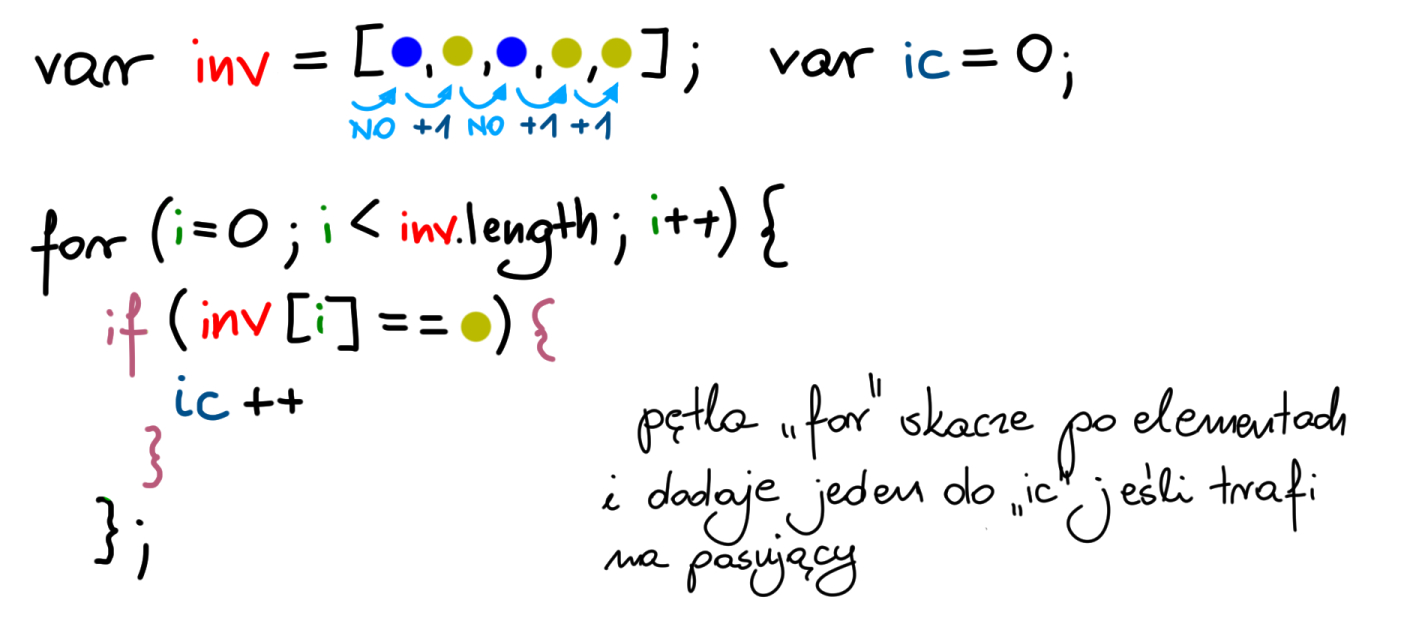 var inv = [●,●,●,●,●]; var ic = 0;
NO +1 NO +1 +1
for (i=0; i < inv.length; i++) {
if (inv[i] == ●) {
ic ++
}
};
pętla „for" skacze po elementach
i dodaje jeden do „ic" jeśli trafi
na pasujący